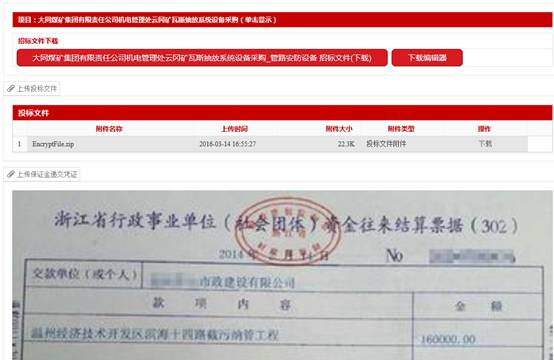 项目：大同煤矿集团有限责任公司机电管理处云冈矿瓦斯抽放系统设备采购（单击显示）
招标文件下载
大同煤矿集团有限责任公司机电管理处云冈矿瓦斯抽放系统设备采购_管路安防设备 招标文件(下载)
下载编辑器
上传投标文件
投标文件
附件名称 上传时间 附件大小 附件类型 操作
1 EncryptFile.zip 2016-03-14 16:55:27 22.3K 投标文件附件 下载
上传保证金递交凭证
浙江省行政事业单位（社会团体）资金往来结算票据（302）
2014年 4日 No
交款单位（或个人） 市政建设有限公司
款 项 内 容 金 额
温州经济技术开发区滨海十四路截污纳管工程 160000.00